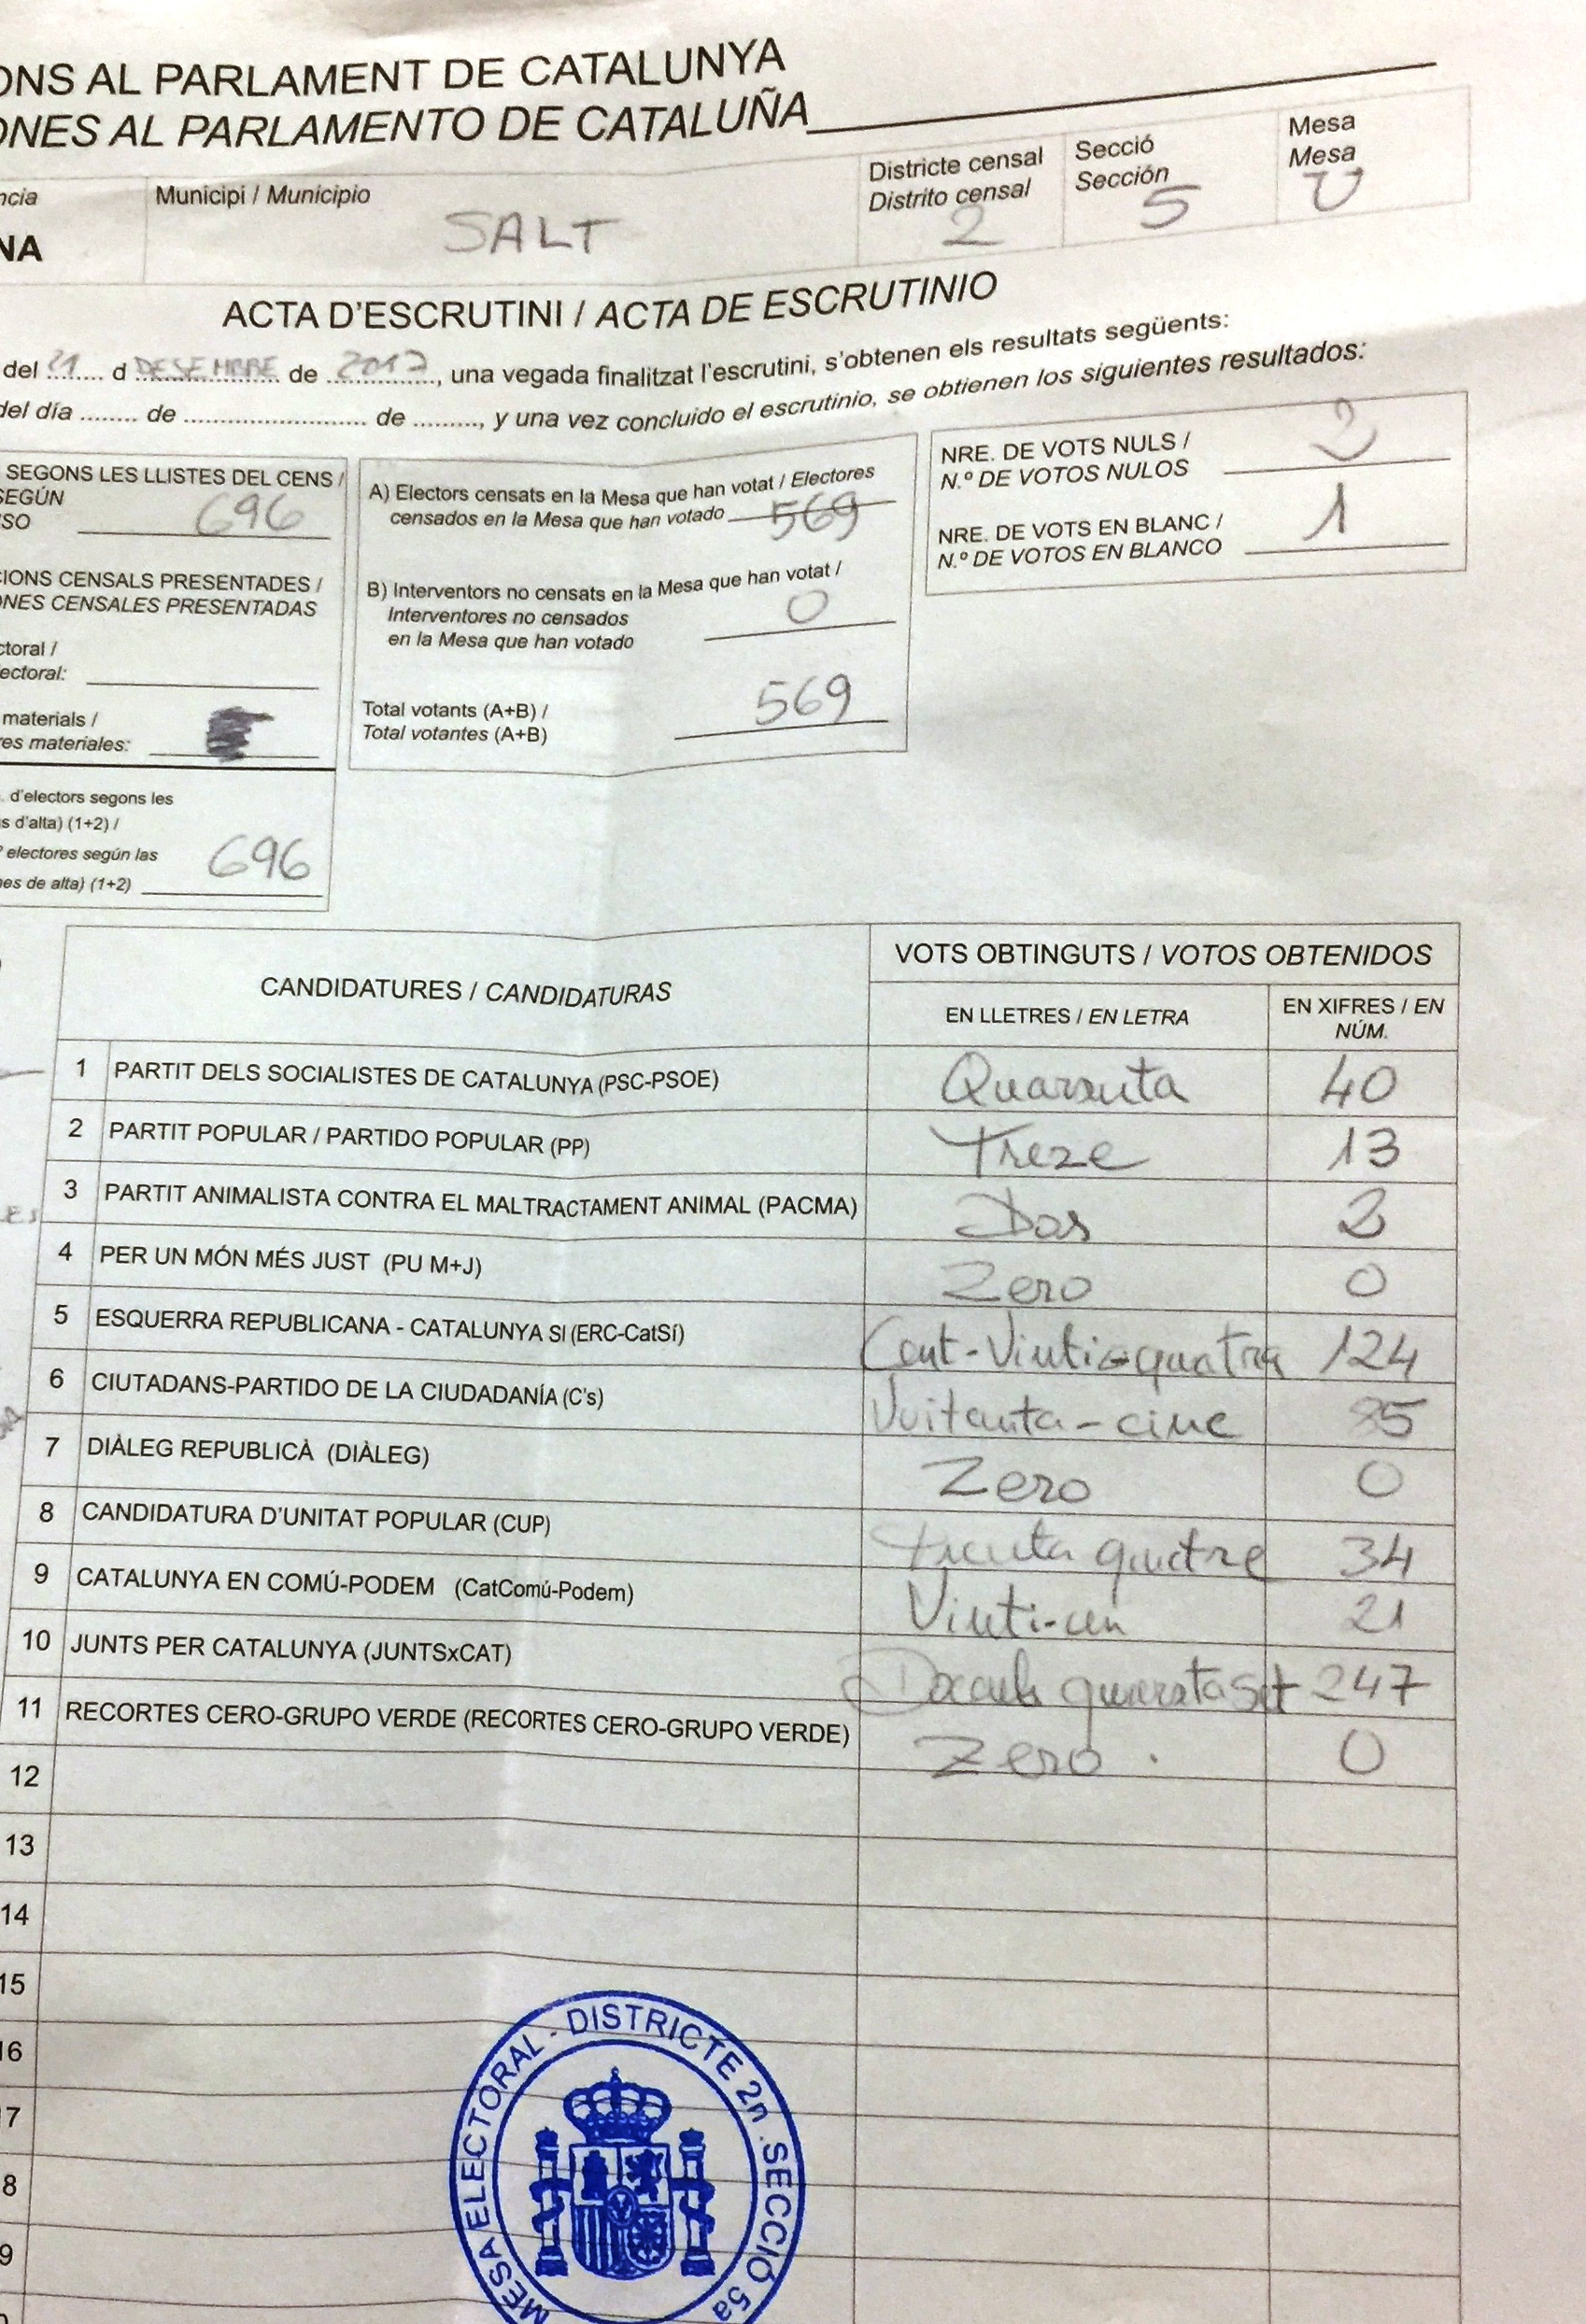 ONS AL PARLAMENT DE CATALUNYA
ONES AL PARLAMENTO DE CATALUÑA
ncia
Municipi / Municipio
Districte censal
Distrito censal
Secció
Sección
Mesa
Mesa
NA
SALT
2
5
U
ACTA D'ESCRUTINI / ACTA DE ESCRUTINIO
del 21 d DESEMBRE de 2017, una vegada finalitzat l'escrutini, s'obtenen els resultats següents:
del día ........ de .......................... de .........., y una vez concluido el escrutinio, se obtienen los siguientes resultados:
SEGONS LES LLISTES DEL CENS /
SEGÚN
SO 696
CIONS CENSALS PRESENTADES /
ONES CENSALES PRESENTADAS
ctoral /
lectoral:
materials /
res materiales:
. d'electors segons les
s d'alta) (1+2) /
electores según las
nes de alta) (1+2) 696
A) Electors censats en la Mesa que han votat / Electores
censados en la Mesa que han votado 569
B) Interventors no censats en la Mesa que han votat /
Interventores no censados
en la Mesa que han votado 0
Total votants (A+B) /
Total votantes (A+B) 569
NRE. DE VOTS NULS /
N.º DE VOTOS NULOS 2
NRE. DE VOTS EN BLANC /
N.º DE VOTOS EN BLANCO 1
CANDIDATURES / CANDIDATURAS
VOTS OBTINGUTS / VOTOS OBTENIDOS
EN LLETRES / EN LETRA
EN XIFRES / EN
NÚM.
1 PARTIT DELS SOCIALISTES DE CATALUNYA (PSC-PSOE) Quaranta 40
2 PARTIT POPULAR / PARTIDO POPULAR (PP) Treze 13
3 PARTIT ANIMALISTA CONTRA EL MALTRACTAMENT ANIMAL (PACMA) Dos 2
4 PER UN MÓN MÉS JUST (PU M+J) Zero 0
5 ESQUERRA REPUBLICANA - CATALUNYA SI (ERC-CatSí) Cent-Vinti-quatre 124
6 CIUTADANS-PARTIDO DE LA CIUDADANÍA (C's) Vuitanta-cinc 85
7 DIÀLEG REPUBLICÀ (DIÀLEG) Zero 0
8 CANDIDATURA D'UNITAT POPULAR (CUP) trenta quatre 34
9 CATALUNYA EN COMÚ-PODEM (CatComú-Podem) Vinti-un 21
10 JUNTS PER CATALUNYA (JUNTSxCAT) 247
11 RECORTES CERO-GRUPO VERDE (RECORTES CERO-GRUPO VERDE) Zero 0
12
13
14
15
16
7
8
9
MESA ELECTORAL - DISTRICTE 2n. SECCIÓ 5a